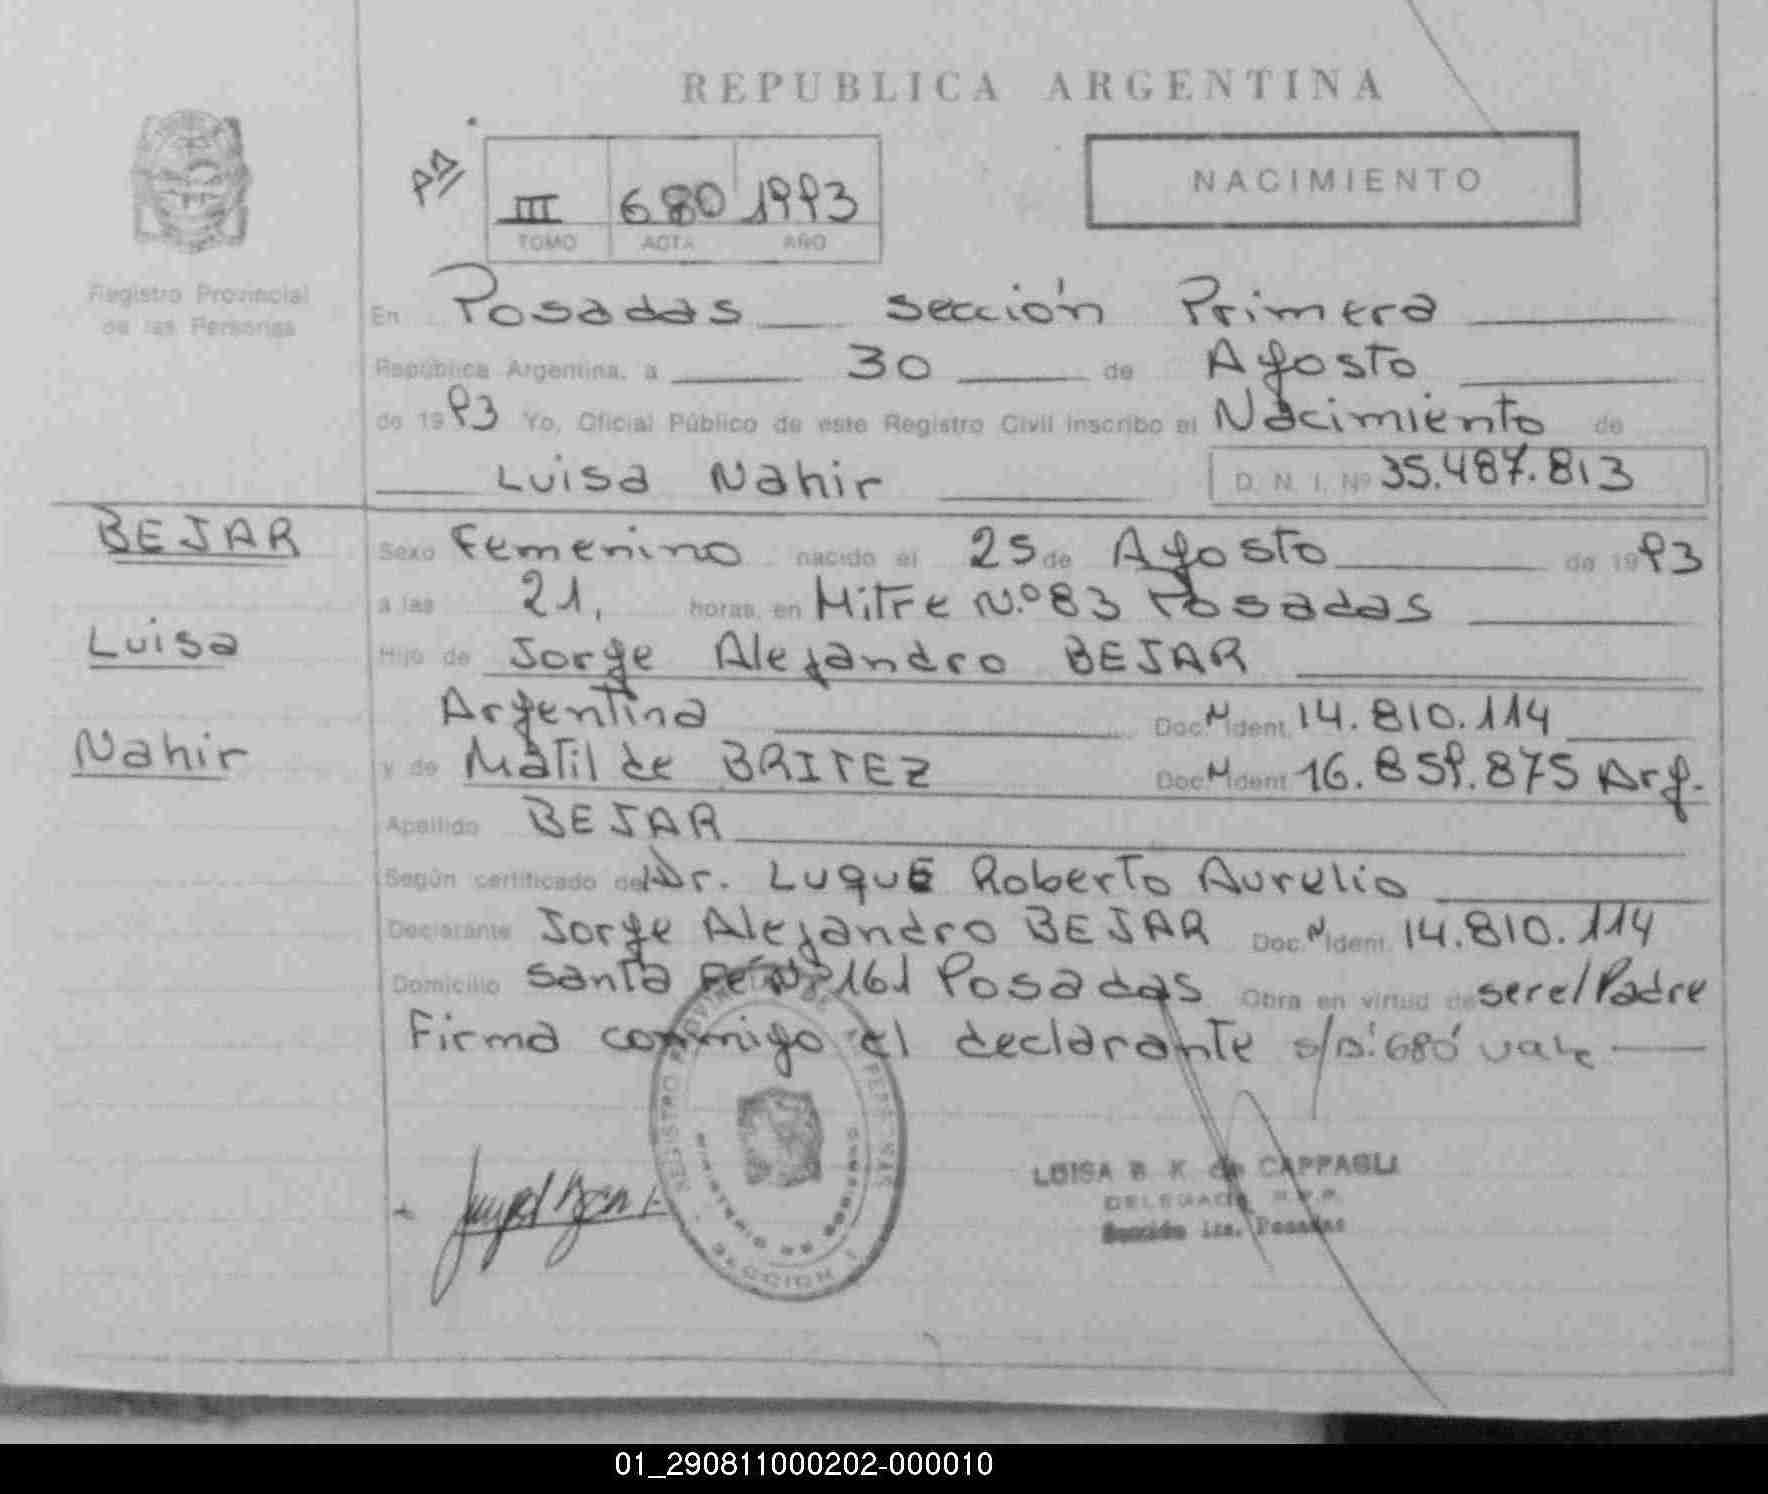 REPUBLICA ARGENTINA
NACIMIENTO
III 680 1993
TOMO ACTA AÑO
Registro Provincial
de las Personas
En Posadas sección Primera
República Argentina, a 30 de Agosto
de 1993 Yo, Oficial Público de este Registro Civil inscribo el Nacimiento de
Luisa Nahir D. N. I. Nº 35.487.813
BEJAR
Luisa
Nahir
Sexo Femenino nacido el 25 de Agosto de 1993
a las 21, horas, en Mitre N.º 83 Posadas
Hijo de Jorge Alejandro BEJAR
Argentina Doc. N Ident. 14.810.114
y de Matilde BRITEZ Doc. N Ident. 16.859.875 Arg.
Apellido BEJAR
Según certificado del Dr. LUQUE Roberto Aurelio
Declarante Jorge Alejandro BEJAR Doc. N Ident. 14.810.114
Domicilio Santa Fé Nº 161 Posadas Obra en virtud de ser el Padre
Firma conmigo el declarante s/b: 680 vale
LUISA B. K. de CAPPAGLI
DELEGADA R.P.P.
Sección 1ra. Posadas
REGISTRO PROVINCIAL DE LAS PERSONAS
MINISTERIO DE GOBIERNO
SECCION 1
01_290811000202-000010